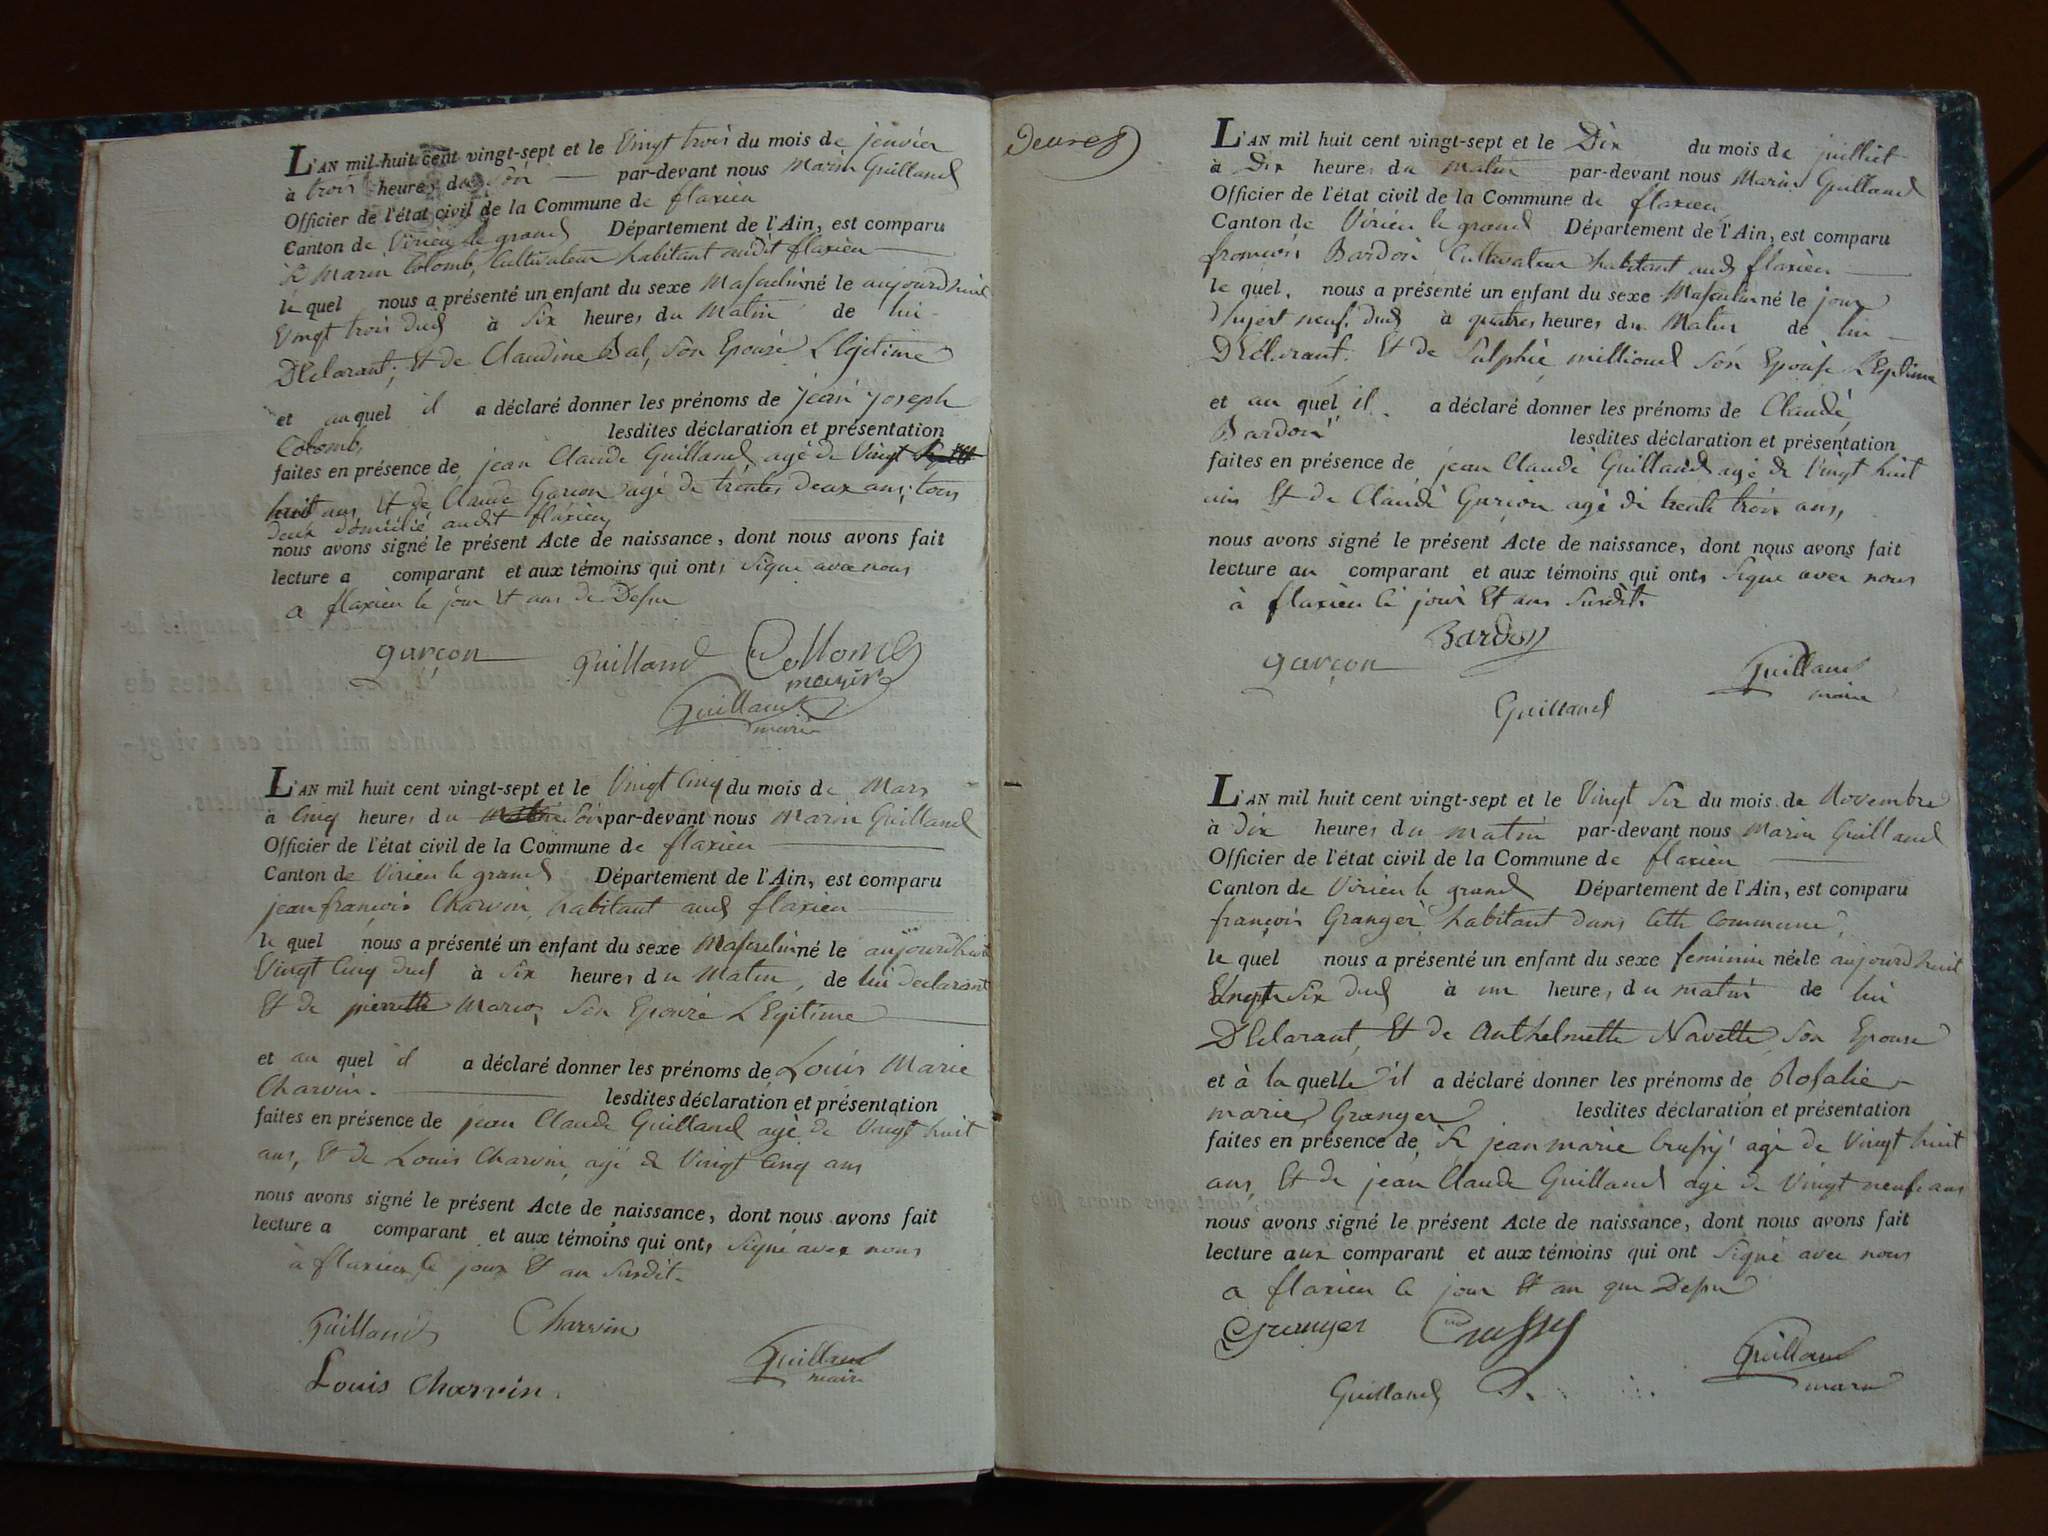 L'AN mil huit cent vingt-sept et le Vingt trois du mois de jenvier
à trois heures du Soir par-devant nous Marin Guilland
Officier de l'état civil de la Commune de flaxieu
Canton de Virieu le grand Département de l'Ain, est comparu
Marin Colomb, Cultivateur habitant audit flaxieu
le quel nous a présenté un enfant du sexe Masculin né le aujourdhuit
Vingt trois dud à Six heures du Matin de lui
Déclarant, Et de Claudine Bal, Son Epouse Légitime
et auquel il a déclaré donner les prénoms de jean joseph
Colomb, lesdites déclaration et présentation
faites en présence de jean Claude Guilland agé de Vingt
huit ans, Et de Claude Garcon agé de trentes deux ans, tous
deux domicilié audit flaxieu
nous avons signé le présent Acte de naissance, dont nous avons fait
lecture a comparant et aux témoins qui ont, Signe avec nous
a flaxieu le jour Et ans de Desu
garçon Guilland Collomb
marin
Guilland
maire
L'AN mil huit cent vingt-sept et le Vingt Cinq du mois de Mars
à Cinq heures du Soir par-devant nous Marin Guilland
Officier de l'état civil de la Commune de flaxieu
Canton de Virieu le grand Département de l'Ain, est comparu
jean françois Charvin, habitant aud flaxieu
le quel nous a présenté un enfant du sexe Masculin né le aujourdhuit
Vingt Cinq dud à Six heures du Matin, de lui declarant
Et de pierrette Marion, Son Epouse LEgitime
et au quel il a déclaré donner les prénoms de Louis Marie
Charvin. lesdites déclaration et présentation
faites en présence de jean Claude Guilland agé de Vingt huit
ans, Et de Louis Charvin, agé de Vingt Cinq ans
nous avons signé le présent Acte de naissance, dont nous avons fait
lecture a comparant et aux témoins qui ont, Signé avec nous
à flaxieu le jour Et an Susdit.
Guilland Charvin
Guilland
maire
Louis Charvin.
L'AN mil huit cent vingt-sept et le Dix du mois de juilliet
à Dix heures du Matin par-devant nous Marin Guilland
Officier de l'état civil de la Commune de flaxieu
Canton de Virieu le grand Département de l'Ain, est comparu
françois Bardon Cultivateur habitant aud flaxieu
le quel, nous a présenté un enfant du sexe Masculin né le jour
d'hyert neuf dud à quatres heures du Matin de lui
Déclarant. Et de Sulphie milliond Son Epouse LEgitime
et au quel il a déclaré donner les prénoms de Claude
Bardon lesdites déclaration et présentation
faites en présence de jean Claude Guilland agé de Vingt huit
ans Et de Claude Garcon agé de trente trois ans,
nous avons signé le présent Acte de naissance, dont nous avons fait
lecture au comparant et aux témoins qui ont, Signe avec nous
à flaxieu le jour Et ans Susdit.
Bardon
garçon Guilland
maire
Guilland
L'AN mil huit cent vingt-sept et le Vingt Six du mois de Novembre
à dix heures du matin par-devant nous Marin Guilland
Officier de l'état civil de la Commune de flaxieu
Canton de Virieu le grand Département de l'Ain, est comparu
françois Granger habitant dans Cette Commune,
le quel nous a présenté un enfant du sexe feminin née le aujourdhuit
Vingt Six dud à une heures du matin de lui
Déclarant, Et de Anthelmette Navette Son Epouse
et à la quelle il a déclaré donner les prénoms de Rosalie
marie Granger lesdites déclaration et présentation
faites en présence de, Sr jean marie Crussy agé de Vingt huit
ans, Et de jean Claude Guilland agé de Vingt neuf ans
nous avons signé le présent Acte de naissance, dont nous avons fait
lecture aux comparant et aux témoins qui ont Signé avec nous
a flaxieu le jour Et an que Desu
Granger Crussy
Guilland
maire
Guilland